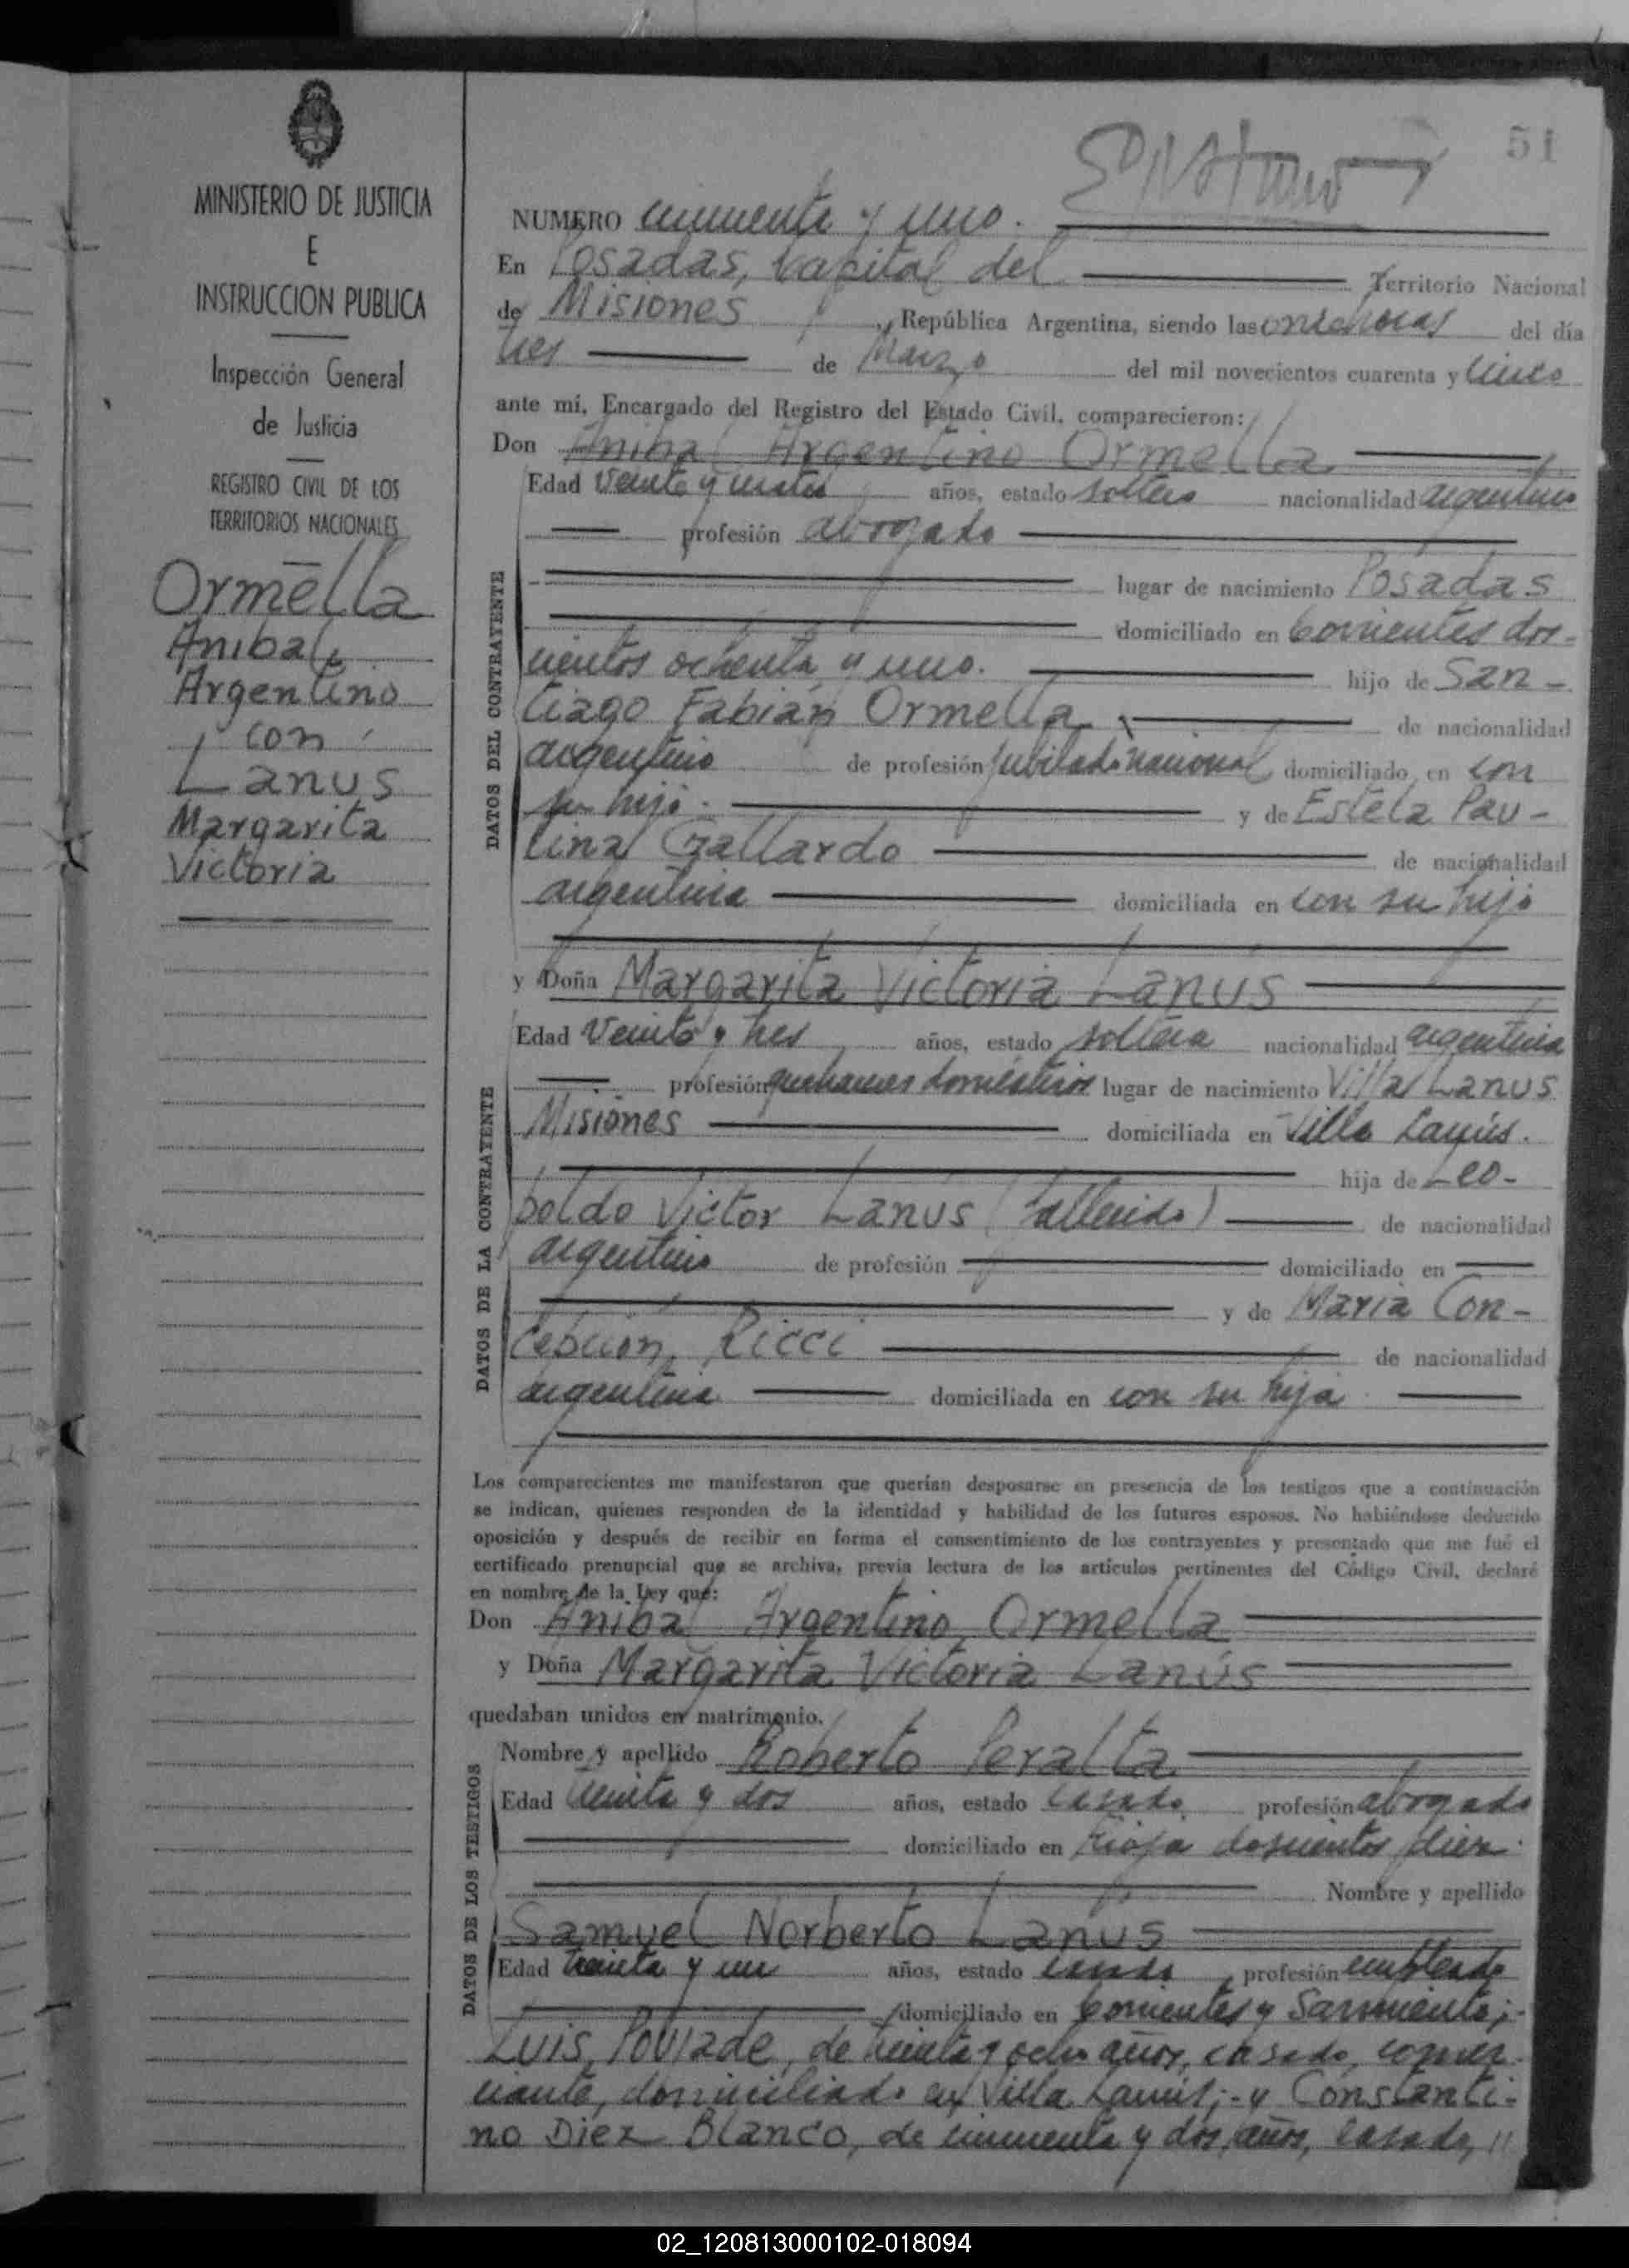 51
MINISTERIO DE JUSTICIA
E
INSTRUCCION PUBLICA
Inspección General
de Justicia
REGISTRO CIVIL DE LOS
TERRITORIOS NACIONALES
Ormella
Anibal
Argentino
con
Lanus
Margarita
Victoria
NUMERO cincuenta y uno.
En Posadas, Capital del Territorio Nacional
de Misiones, República Argentina, siendo las once horas del día
tres de Marzo del mil novecientos cuarenta y cinco
ante mí, Encargado del Registro del Estado Civil, comparecieron:
Don Anibal Argentino Ormella
DATOS DEL CONTRAYENTE
Edad veinte y años, estado soltero nacionalidad argentino
profesión abogado
lugar de nacimiento Posadas
domiciliado en Corrientes dos-
cientos ochenta y uno. hijo de San-
tiago Fabián Ormella de nacionalidad
argentino de profesión jubilado nacional domiciliado en con
su hijo. y de Estela Pau-
lina Gallardo de nacionalidad
argentina domiciliada en con su hijo
y Doña Margarita Victoria Lanús
DATOS DE LA CONTRAYENTE
Edad veinte y tres años, estado soltera nacionalidad argentina
profesión quehaceres domésticos lugar de nacimiento Villa Lanus
Misiones domiciliada en Villa Lanús.
hija de Leo-
poldo Victor Lanus (fallecido) de nacionalidad
argentino de profesión domiciliado en
y de María Con-
cepción Ricci de nacionalidad
argentina domiciliada en con su hija
Los comparecientes me manifestaron que querían desposarse en presencia de los testigos que a continuación
se indican, quienes responden de la identidad y habilidad de los futuros esposos. No habiéndose deducido
oposición y después de recibir en forma el consentimiento de los contrayentes y presentado que me fué el
certificado prenupcial que se archiva, previa lectura de los artículos pertinentes del Código Civil, declaré
en nombre de la Ley que:
Don Anibal Argentino Ormella
y Doña Margarita Victoria Lanús
quedaban unidos en matrimonio.
DATOS DE LOS TESTIGOS
Nombre y apellido Roberto Peralta
Edad treinta y dos años, estado casado profesión abogado
domiciliado en Rioja doscientos diez.
Nombre y apellido
Samuel Norberto Lanus
Edad treinta y un años, estado casado, profesión empleado
domiciliado en Corrientes y Sarmiento;-
Luis Poujade, de treinta y ocho años, casado, comer-
ciante, domiciliado en Villa Lanús;- y Constanti-
no Diez Blanco, de cincuenta y dos años, casado, //
02_120813000102-018094